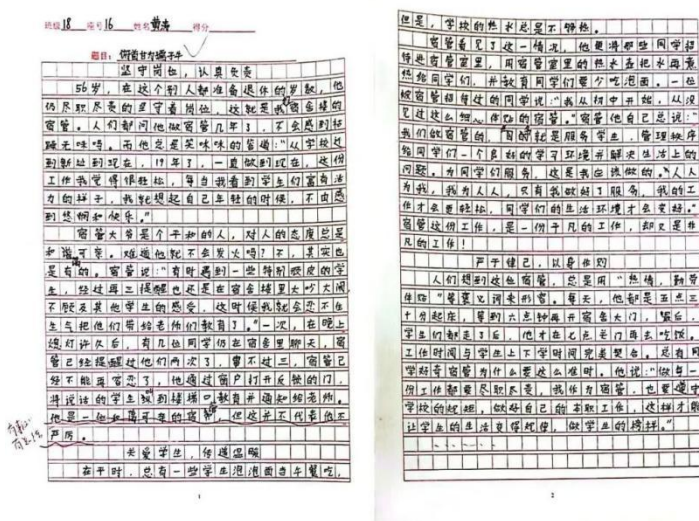 班级18 座号16 姓名黄涛 得分
题目：俯首甘为孺子牛
坚守岗位，认真负责
56岁，在这个别人都准备退休的岁数，他
仍尽职尽责的坚守着岗位，这就是我宿舍楼的
宿管。人们都问他做宿管几年了，不会感到枯
燥无味吗。而他总是笑咪咪的答道：“从学校迁
到新址到现在，19年了，一直做到现在，这份
工作我觉得很轻松，每当我看到学生们富有活
力的样子，我就想起自己年轻的时候，不由感
到悠悯和快乐。”
宿管大爷是个平和的人，对人的态度总是
和谐可亲。难道他就不会发火吗？不，其实也
是有的。宿管说：“有时遇到一些特别顽皮的学
生，经过再三提醒也还是在宿舍楼里大吵大闹，
不顾及其他学生的感受，这时候我就会忍不住
生气把他们带给老师们教育了。”一次，在晚上
熄灯许久后，有几位同学仍在宿舍里聊天，宿
管已经提醒过他们两次了，事不过三，宿管已
经不能再容忍了，他通过窗户打开反锁的门，
将说话的学生叫到楼梯口教育并通知给老师。
他是一位和蔼可亲的宿管，但这并不代表他不
严厉。
关爱学生，传递温暖
在平时，总有一些学生泡泡面当午餐吃，
1
但是，学校的热水总是不够热。
宿管看见了这一情况，他更将那些同学招
待进宿管室里，用宿管室里的热水壶把水再煮
热给同学们，并教育同学们要少吃泡面。一位
被宿管招待过的同学说：“我从初中开始，从没
见过这么细心体贴的宿管。”宿管他自己总说：“
我们做宿管的，目的就是服务学生，管理秩序
给同学们一个良好的学习环境并解决生活上的
问题。为同学们服务，这是我应该做的。”人人
为我，我为人人，只有我做好了服务，我的工
作才会更轻松，同学们的生活环境才会变好。”
宿管这份工作，是一份平凡的工作，却又是非
凡的工作！
严于律己，以身作则
人们想到这位宿管，总是用“热情，勤劳
体贴”等褒义词来形容。每天，他都是五点三
十分起床，等到六点钟再开宿舍大门，窗后，
学生们都走了后，他才在七点关门再去吃饭。
工作时间与学生上下学时间完美契合。总有同
学好奇宿管为什么要这么准时，他说：“做每一
份工作都要尽职尽责，我作为宿管，也要遵守
学校的规矩，做好自己的本职工作，这样才能
让学生的生活变得规律，做学生的榜样。”
2